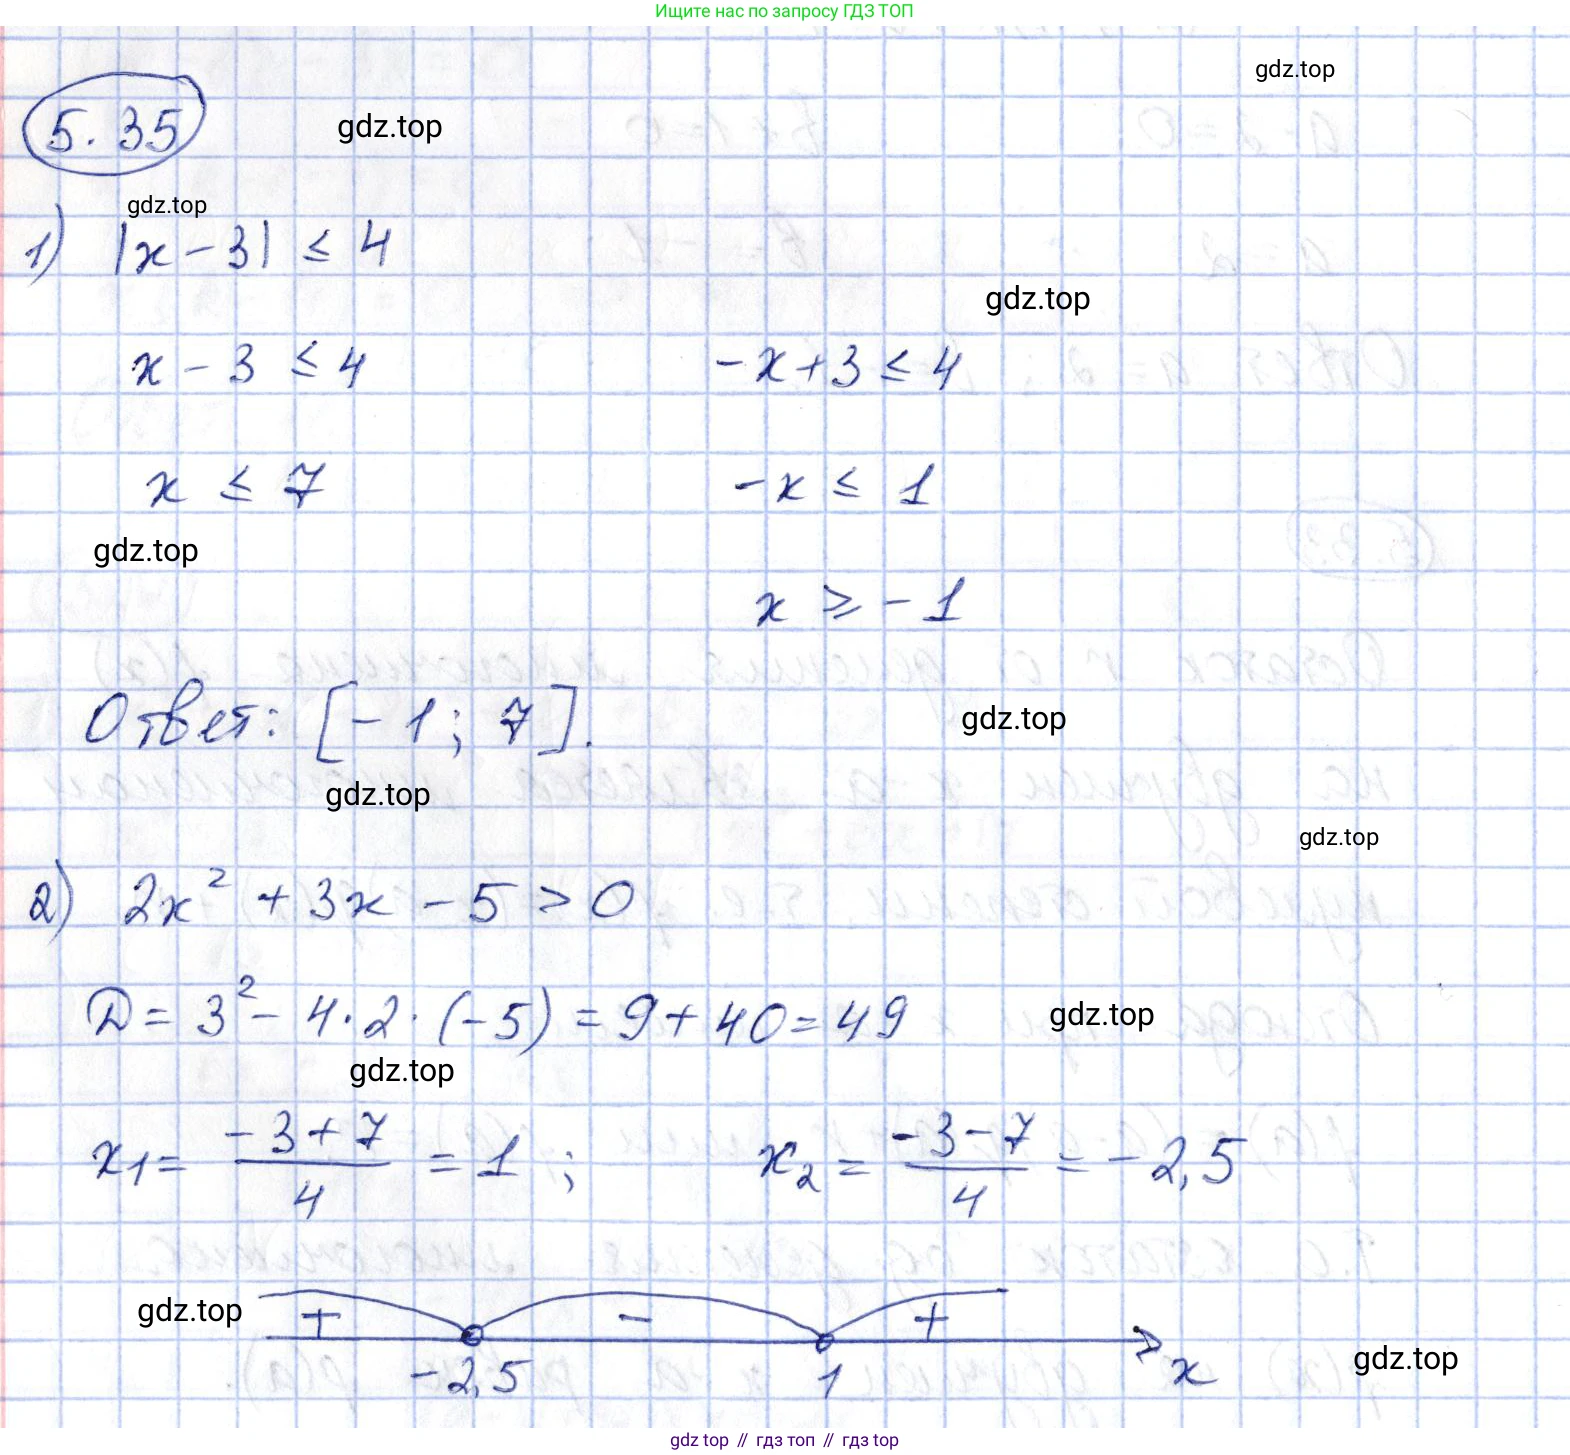 Ищите нас по запросу ГДЗ ТОП
gdz.top
5.35
gdz.top
gdz.top
1) |x - 3| ≤ 4
gdz.top
x - 3 ≤ 4 -x + 3 ≤ 4
x ≤ 7 -x ≤ 1
gdz.top
x ≥ -1
Ответ: [-1; 7].
gdz.top
gdz.top
gdz.top
2) 2x² + 3x - 5 > 0
D = 3² - 4·2·(-5) = 9 + 40 = 49
gdz.top
gdz.top
x₁ = (-3+7)/4 = 1; x₂ = (-3-7)/4 = -2,5
gdz.top
+ - +
-2,5 1 x
gdz.top
gdz top // гдз топ // гдз top